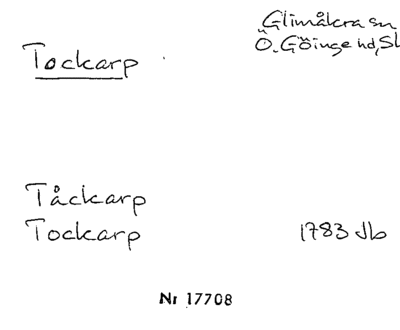 Glimåkra sn
Tockarp
Ö. Göinge hd, Sk
Tåckarp
Tockarp 1783 Jb
Nr 17708